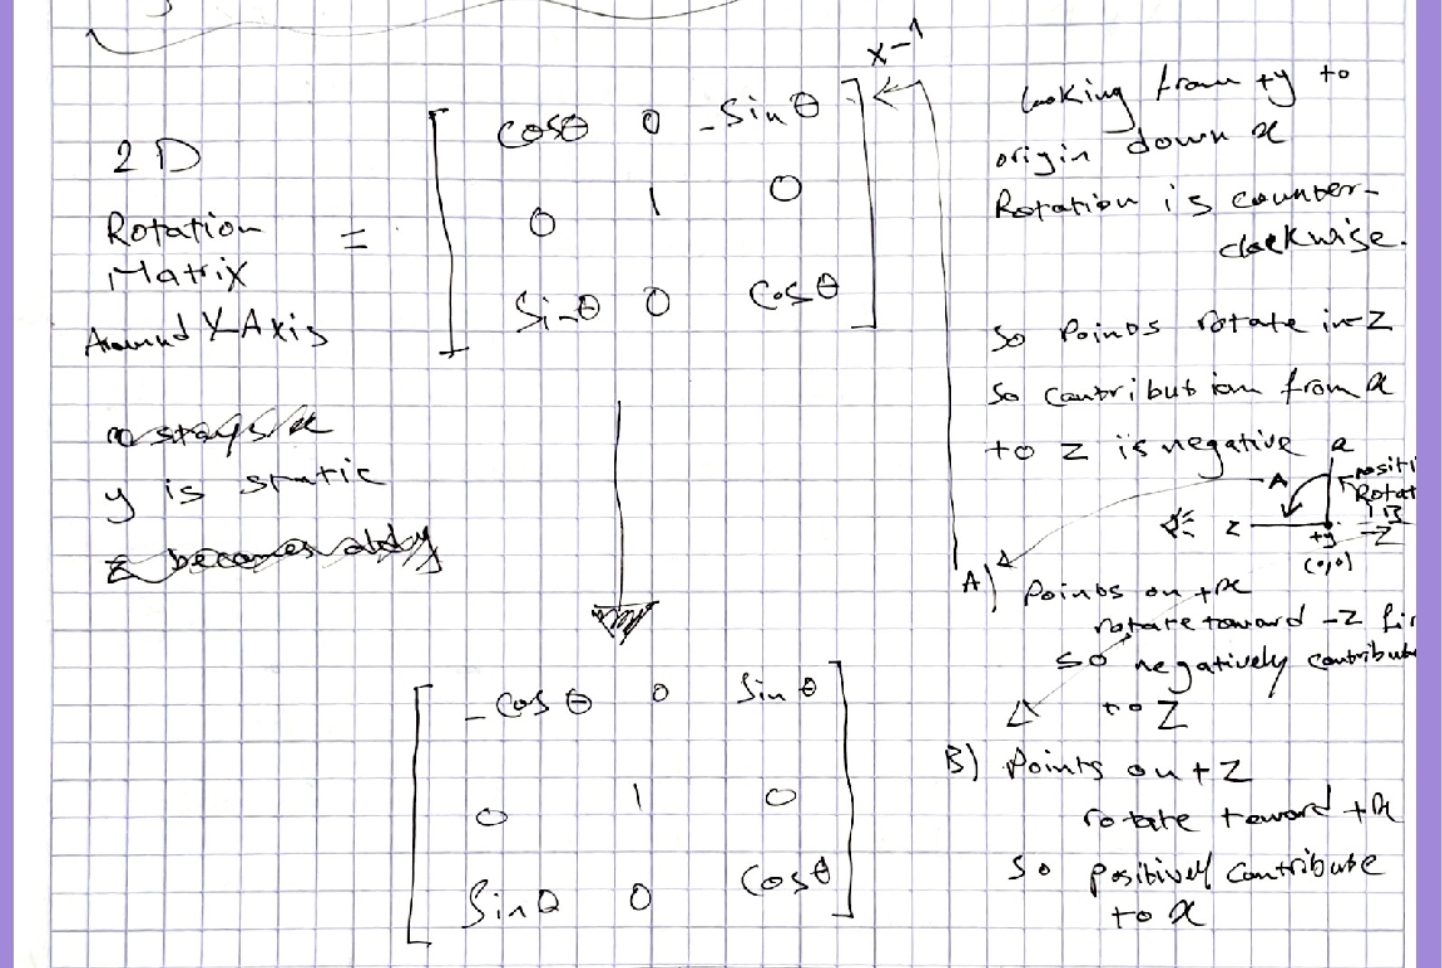 2D
Rotation
Matrix
Around Y-Axis
=
cosθ 0 -Sinθ
0 1 0
Sinθ 0 Cosθ
x-1
y is static
z becomes
-Cosθ 0 Sinθ
0 1 0
Sinθ 0 Cosθ
looking from +y to
origin down x
Rotation is counter-
clockwise.
So Points rotate in-Z
So contribution from x
to z is negative
A
z
+y
-Z
(0,0)
A) Points on +x
rotate toward -Z
so negatively
to Z
B) Points on +Z
rotate toward +x
So positively contribute
to x